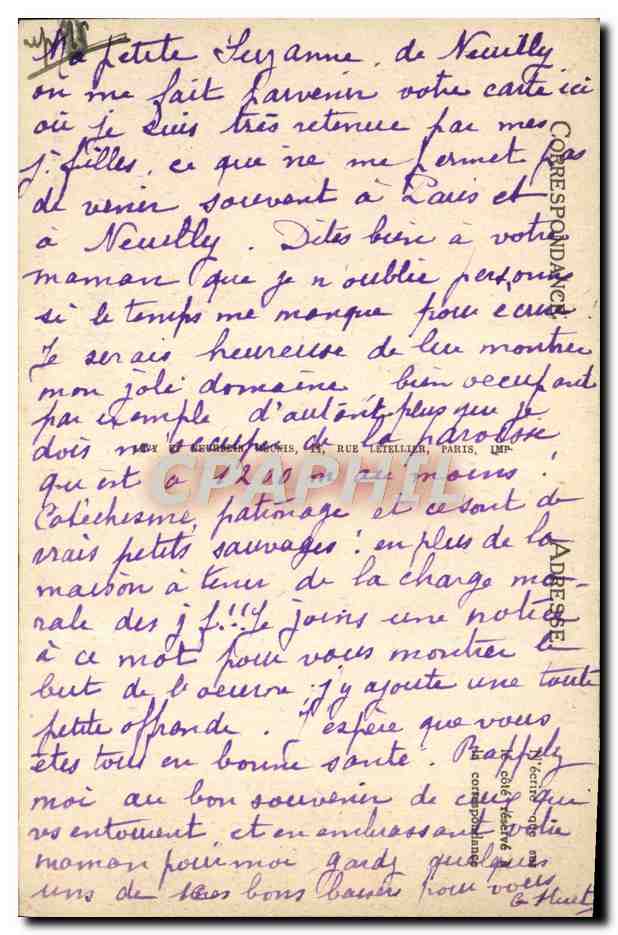 Ma petite Suzanne, de Neuilly
on me fait parvenir votre carte ici
où je suis très retenue par mes
j. filles, ce que ne me permet pas
de venir souvent à Paris et
à Neuilly. Dites bien à votre
maman que je n'oublie personne
si le temps me manque pour écrire.
Je serais heureuse de lui montrer
mon joli domaine, bien occupant
par exemple d'autant plus que je
dois m'occuper de la paroisse
qui est à 1200 m au moins !
Catéchisme, patronage et ce sont de
vrais petits sauvages ! en plus de la
maison à tenir de la charge mo-
rale des j f!!! Je joins une notice
à ce mot pour vous montrer le
but de l'oeuvre j'y ajoute une toute
petite offrande. J'espère que vous
êtes tous en bonne santé. Rappelez
moi au bon souvenir de ceux qui
vs entourent et en embrassant votre
maman pour moi gardez quelques
uns de mes bons baisers pour vous
CORRESPONDANCE
LÉVY ET NEURDEIN RÉUNIS, 44, RUE LETELLIER, PARIS, IMP.
CPAPHIL
ADRESSE
N'écrire que sur
le côté réservé à
la correspondance